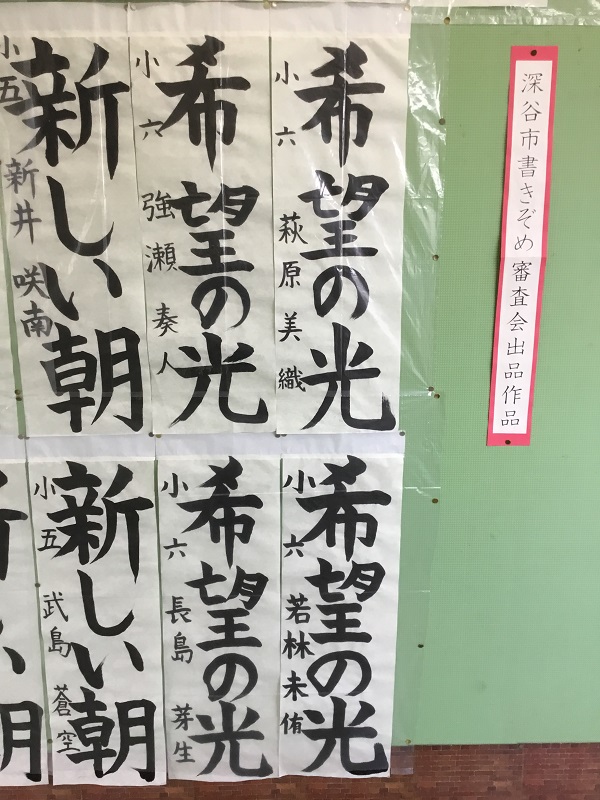 深谷市書きぞめ審査会出品作品
希望の光
小六 萩原美織
希望の光
小六 強瀬奏人
新しい朝
小五 新井咲南
希望の光
小六 若林未侑
希望の光
小六 長島芽生
新しい朝
小五 武島蒼空